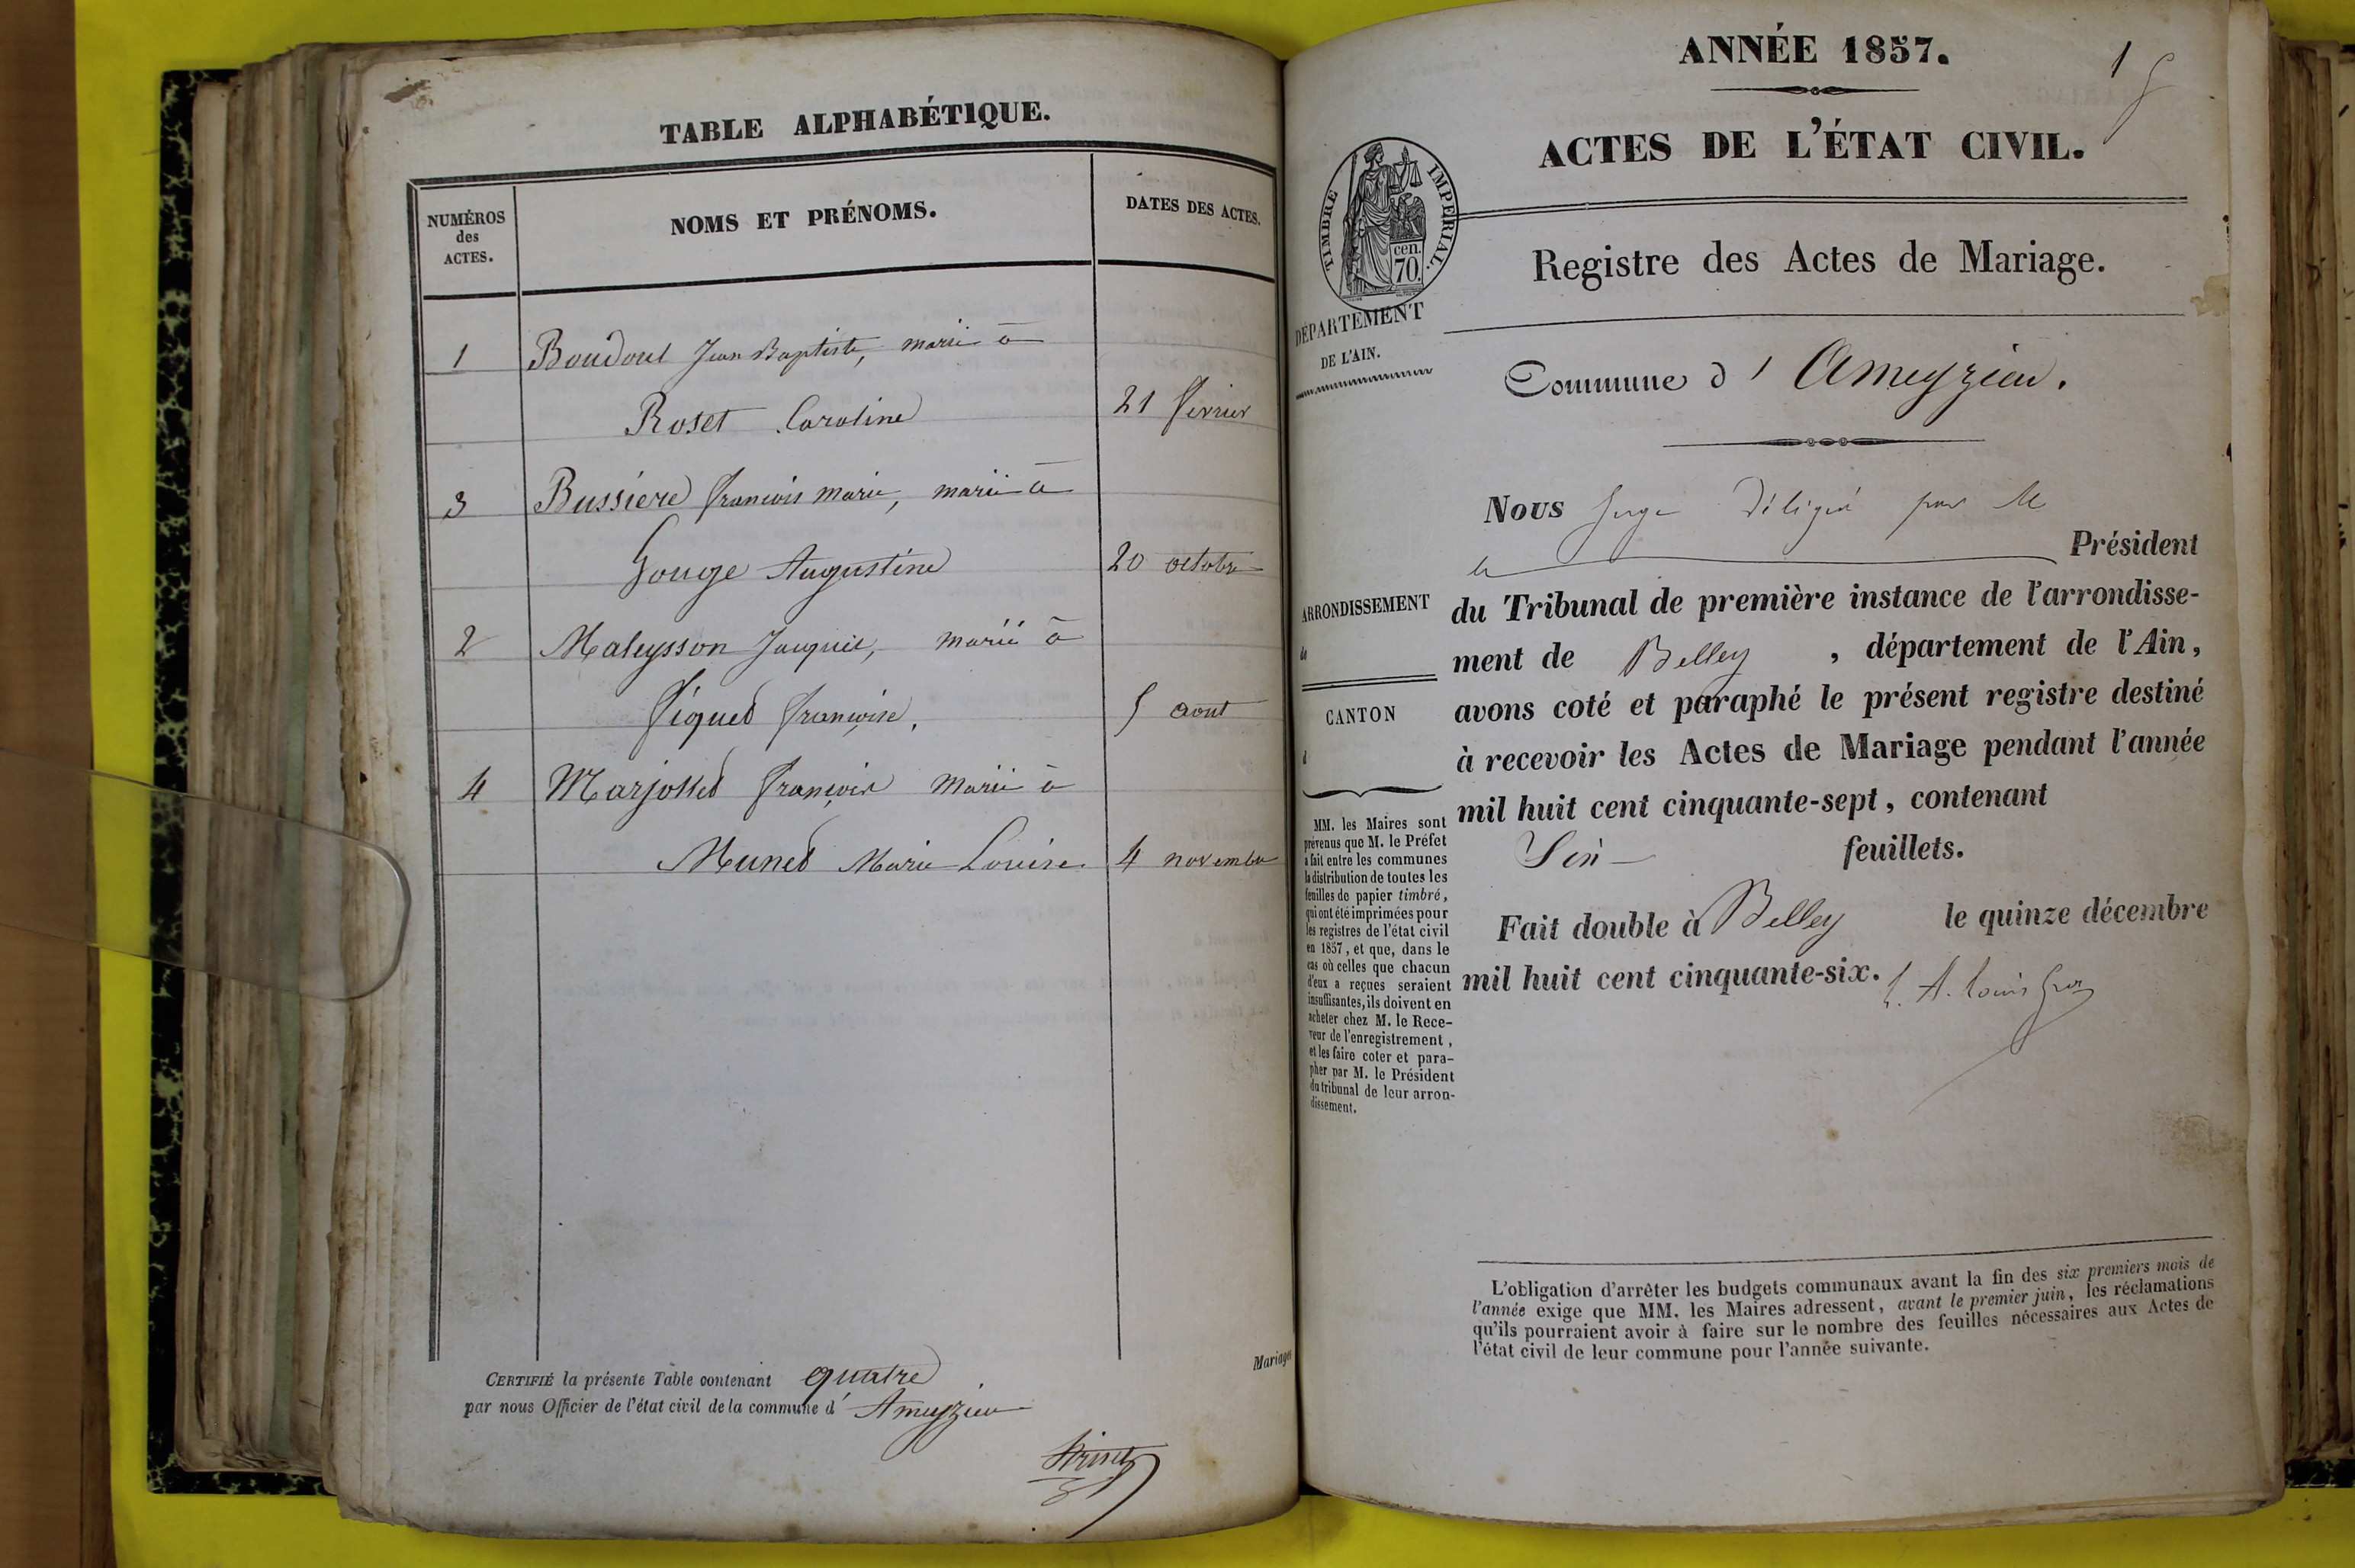 TABLE ALPHABÉTIQUE.
NUMÉROS
des
ACTES.
NOMS ET PRÉNOMS.
DATES DES ACTES.
1 Boudoul Jean Baptiste, marié à
Roset Caroline 21 février
3 Bussiere François Marie, marié à
Gouge Augustine 20 octobre
2 Maleysson Jacques, marié à
Siqued Françoise, 5 aout
4 Marjolled François marié à
Muned Marie Louise 4 novembre
CERTIFIÉ la présente Table contenant quatre
par nous Officier de l'état civil de la commune d' Ameyzieu
Mariages
ANNÉE 1857.
1
ACTES DE L'ÉTAT CIVIL.
TIMBRE IMPÉRIAL.
cen.
70.
Registre des Actes de Mariage.
DÉPARTEMENT
DE L'AIN.
Commune d' Ameyzieu.
Nous Juge délégué par M
le Président
ARRONDISSEMENT
de
CANTON
d
du Tribunal de première instance de l'arrondisse-
ment de Belley, département de l'Ain,
avons coté et paraphé le présent registre destiné
à recevoir les Actes de Mariage pendant l'année
mil huit cent cinquante-sept, contenant
Six feuillets.
Fait double à Belley le quinze décembre
mil huit cent cinquante-six.
MM. les Maires sont
prévenus que M. le Préfet
a fait entre les communes
la distribution de toutes les
feuilles de papier timbré,
qui ont été imprimées pour
les registres de l'état civil
en 1857, et que, dans le
cas où celles que chacun
d'eux a reçues seraient
insuffisantes, ils doivent en
acheter chez M. le Rece-
veur de l'enregistrement,
et les faire coter et para-
pher par M. le Président
du tribunal de leur arron-
dissement.
L'obligation d'arrêter les budgets communaux avant la fin des six premiers mois de
l'année exige que MM. les Maires adressent, avant le premier juin, les réclamations
qu'ils pourraient avoir à faire sur le nombre des feuilles nécessaires aux Actes de
l'état civil de leur commune pour l'année suivante.